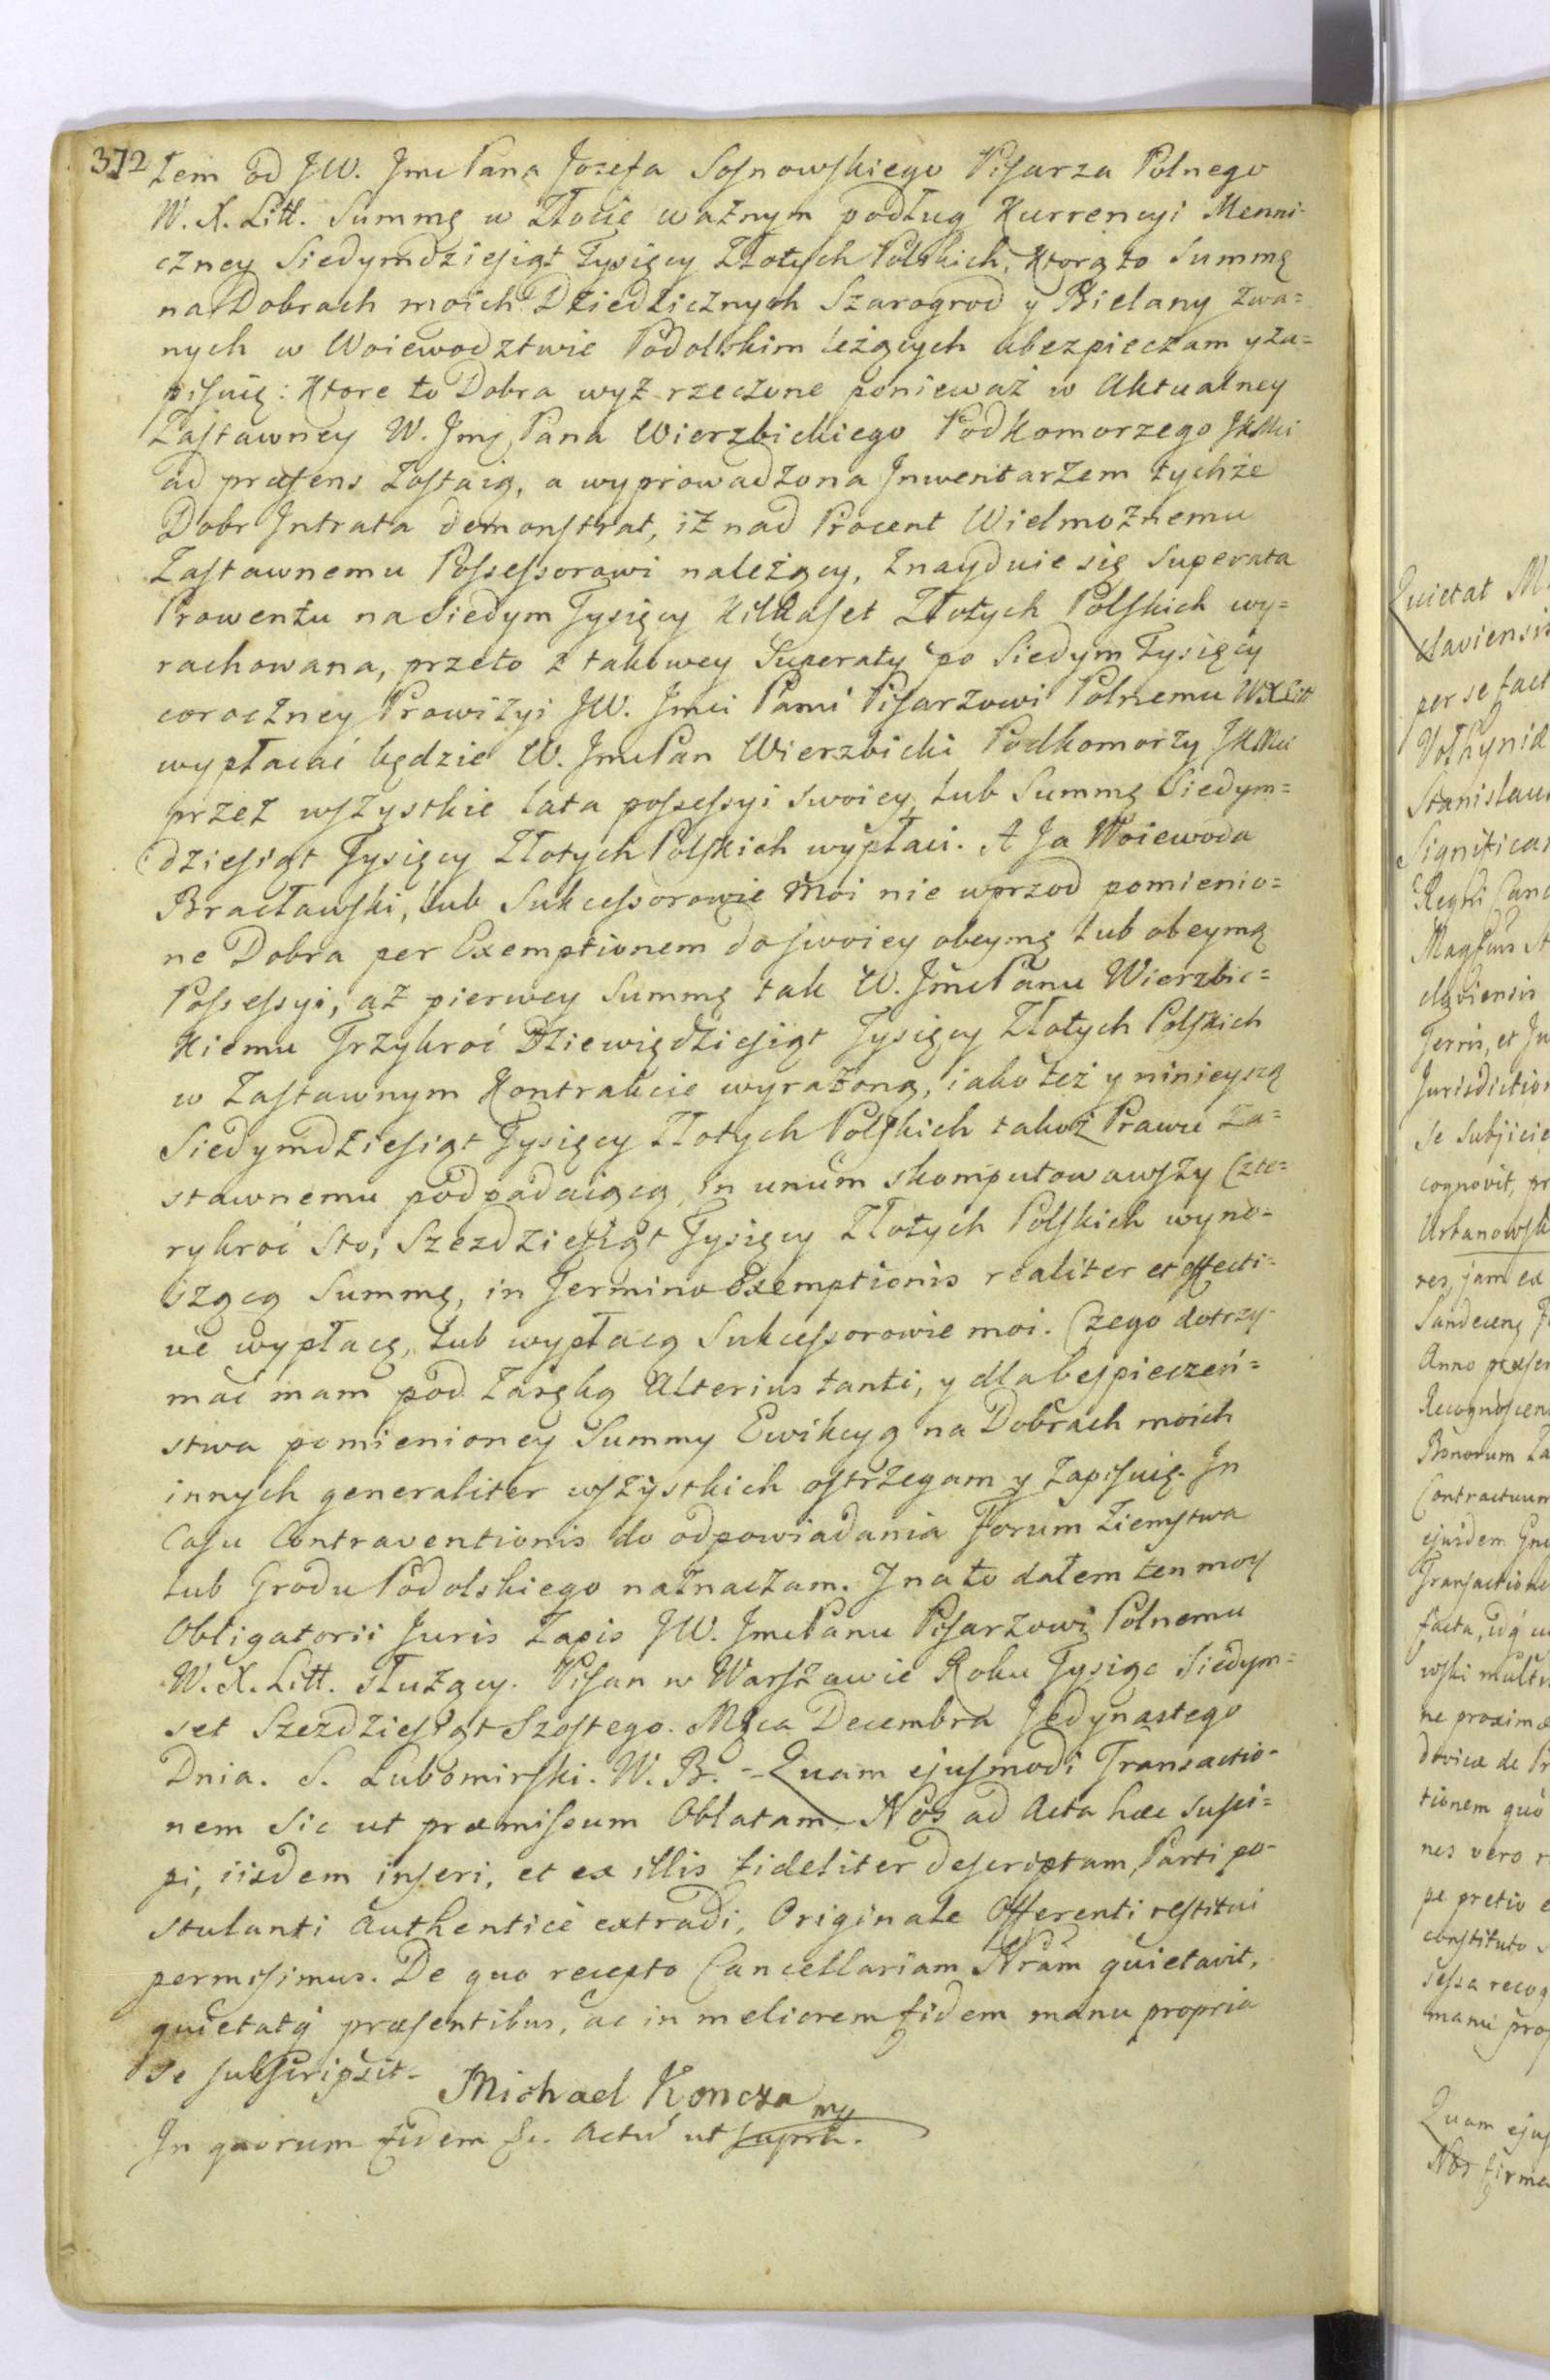 372
żem od JW. Jmć Pana Jozefa Sosnowskiego Pisarza Polnego
W. X. Litt. Summę w Złocie ważnym podług Kurrencyi Menni-
czney Siedymdziesiąt Tysięcy Złotych Polskich, Ktorą to Summę
na Dobrach moich Dziedzicznych Szarogrod y Bielany zwa=
nych w Woiewodztwie Podolskim leżących ubezpieczam y za=
pisuię: Ktore to Dobra wyż rzeczone ponieważ w Aktualney
Zastawney W. Jmć Pana Wierzbickiego Podkomorzego
ad præsens zostaią, a wyprowadzona Jnwentarzem tychże
Dobr Jntrata demonstrat, iż nad Procent Wielmożnemu
Zastawnemu Possessorowi należący, znayduie się Superata
Prowentu na Siedym Tysięcy Kilkaset Złotych Polskich wy=
rachowana, przeto z takowey Superaty po Siedym Tysięcy
coroczney Prowizyi JW. Jmci Panu Pisarzowi Polnemu W.X.Litt
wypłacać będzie W. Jmć Pan Wierzbicki Podkomorzy
przez wszystkie lata possessyi swoiey, lub Summę Siedym=
dziesiąt Tysięcy Złotych Polskich wypłaci. A Ja Woiewoda
Bracławski, lub Sukcessorowie Moi nie wprzod pomienio=
ne Dobra per Exemptionem do swoiey obeymę lub obeymą
Possessyi, aż pierwey Summę tak W. Jmć Panu Wierzbic=
kiemu Trzykroć Dziewiędziesiąt Tysięcy Złotych Polskich
w Zastawnym Kontrakcie wyrażoną, iako też y ninieyszą
Siedymdziesiąt Tysięcy Złotych Polskich takoż Prawu Za=
stawnemu podpadaiącą, in unum skomputowawszy Czte=
rykroć Sto, Szezdziesiąt Tysięcy Złotych Polskich wyno=
szącą Summę, in Termino Exemptionis realiter et effecti=
ve wypłacę, lub wypłacą Sukcessorowie moi. Czego dotrzy-
mać mam pod Zaręką Alterius tanti, y dla bespieczeń=
stwa pomienioney Summy Ewikcyą na Dobrach moich
innych generaliter wszystkich ostrzegam y zapisuię. Jn
Casu Contraventionis do odpowiadania Forum Ziemstwa
lub Grodu Podolskiego naznaczam. J na to dałem ten moy
Obligatorii Juris Zapis JW. Jmć Panu Pisarzowi Polnemu
W. X. Litt. służący. Pisan w Warszawie Roku Tysiąc Siedym=
set Szezdziesiąt Szostego. Mca Decembra Jedynastego
Dnia. S. Lubomirski. W. B. = Quam ejusmodi Transactio-
nem sic ut præmissum Oblatam, Nos ad Acta hæc susci=
pi, iisdem inseri, et ex illis fideliter descriptam, Parti po-
stulanti authenticè extradi, Originale Offerenti restitui
permisimus. De quo recepto Cancellariam Nrãm quietavit,
quietatq́ præsentibus, ac in meliorem fidem manu propria
se subscripsit-
Michael Koncza
mp
In quorum fidem &c. Actũ ut supra.
Quietat
claviensis
per se fact
Volhyniæ
Stanislau
Significa
Regni Canc
claviensis
Terris, et Ju
Jurisdiction
se subjicie
cognovit, pr
Urbanowsk
res, jam ex
Anno præsen
Recognoscen
Bonorum Za
Contractuum
ejusdem Gne
Transactione
facta, idq́ u
wski multu
ne proximæ
dovicæ de Pr
tionem quo
nes vero r
pe pretio e
constituto s
sessa recog
manu prop
Quam ejus
Nos firma